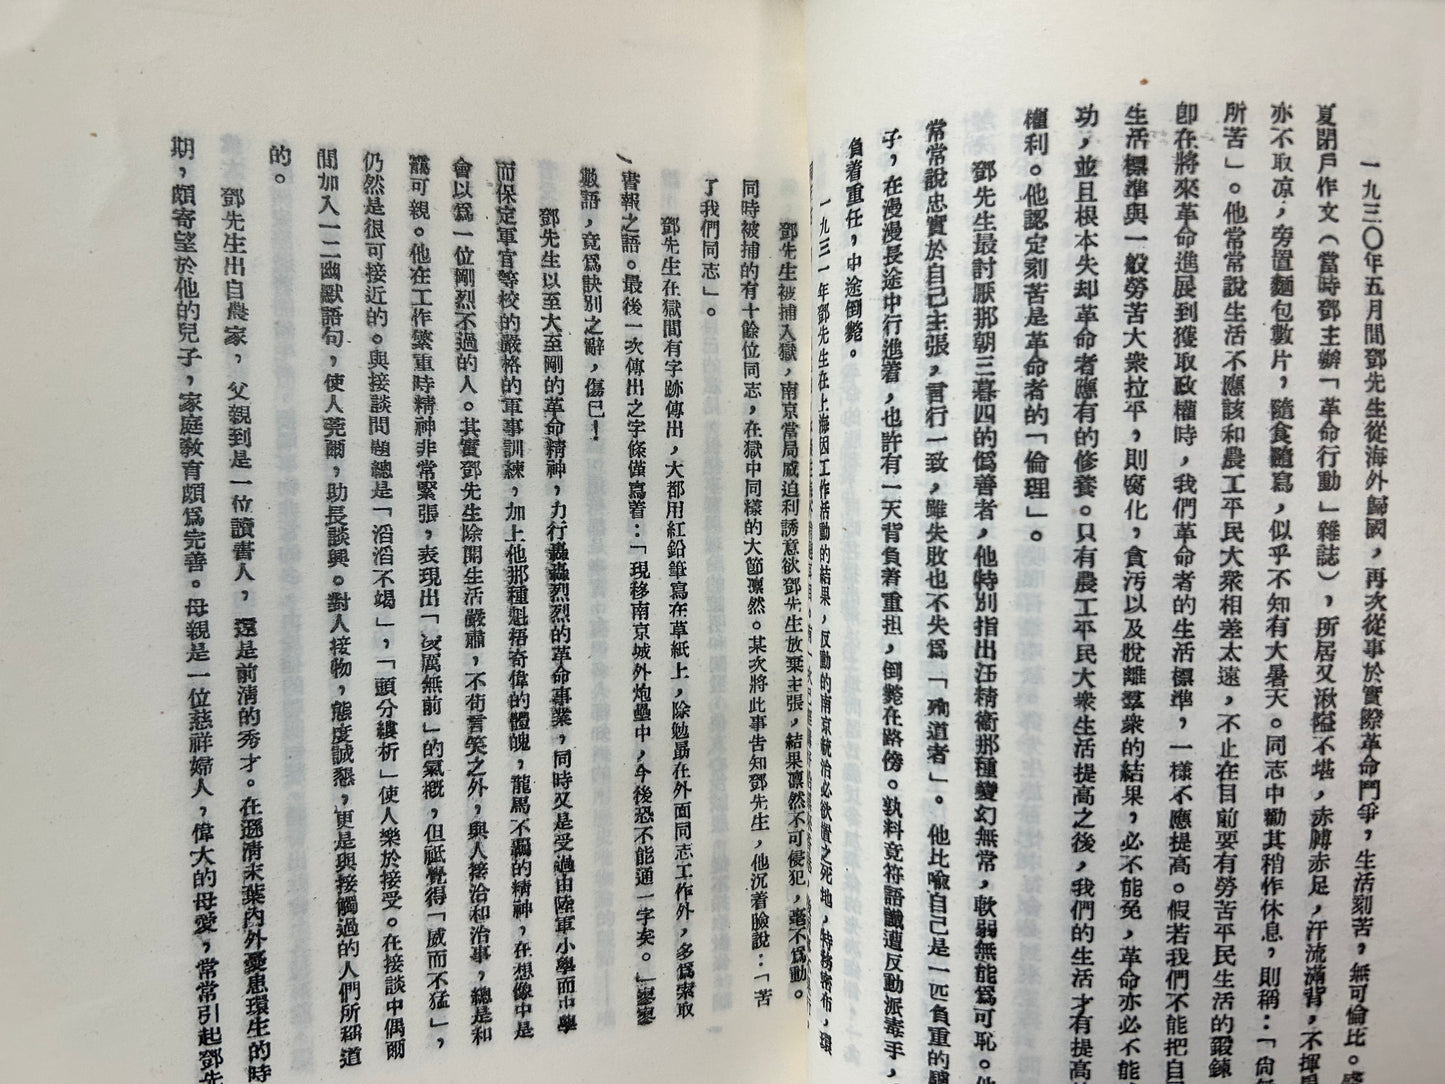 一九三〇年五月間鄧先生從海外歸國，再次從事於實際革命鬥爭，生活刻苦，無可倫比。
夏閉戶作文（當時鄧主辦「革命行動」雜誌），所居又湫隘不堪，赤膊赤足，汗流滿背，不揮
亦不取凉；旁置麵包數片，隨食隨寫，似乎不知有大暑天。同志中勸其稍作休息，則稱：「尙
所苦」。他常常說生活不應該和農工平民大衆相差太遠，不止在目前要有勞苦平民生活的鍛鍊
卽在將來革命進展到獲取政權時，我們革命者的生活標準，一樣不應提高。假若我們不能把自
生活標準與一般勞苦大衆拉平，則腐化，貪汚以及脫離羣衆的結果，必不能免，革命亦必不能
功，並且根本失却革命者應有的修養。只有農工平民大衆生活提高之後，我們的生活才有提高
權利。他認定刻苦是革命者的「倫理」。
鄧先生最討厭那朝三暮四的僞善者，他特別指出汪精衛那種變幻無常，軟弱無能爲可恥。他
常常說忠實於自己主張，言行一致，雖失敗也不失爲「殉道者」。他比喩自己是一匹負重的
子，在漫漫長途中行進着，也許有一天背負着重担，倒斃在路傍。孰料竟符語讖遭反動派毒手，
負着重任，中途倒斃。
一九三一年鄧先生在上海因工作活動的結果，反動的南京統治必欲置之死地，特務密布，環
鄧先生被捕入獄，南京當局威迫利誘意欲鄧先生放棄主張，結果凜然不可侵犯，毫不爲動。
同時被捕的有十餘位同志，在獄中同樣的大節凜然。某次將此事告知鄧先生，他沉着臉說：「苦
了我們同志」。
鄧先生在獄間有字跡傳出，大都用紅鉛筆寫在草紙上，除勉勗在外面同志工作外，多爲索取
書報之語。最後一次傳出之字條僅寫着：「現移南京城外炮壘中，今後恐不能通一字矣。」寥寥
數語，竟爲訣別之辭，傷已！
鄧先生以至大至剛的革命精神，力行轟轟烈烈的革命事業，同時又是受過由陸軍小學而中學
而保定軍官等校的嚴格的軍事訓練，加上他那種魁梧奇偉的體魄，龍馬不羈的精神，在想像中是
會以爲一位剛烈不過的人。其實鄧先生除開生活嚴肅，不苟言笑之外，與人接洽和治事，總是和
靄可親。他在工作繁重時精神非常緊張，表現出「凌厲無前」的氣槪，但祗覺得「威而不猛」，
仍然是很可接近的。與接談問題總是「滔滔不竭」，「頭分縷析」使人樂於接受。在接談中偶爾
間加入一二幽默語句，使人莞爾，助長談興。對人接物，態度誠懇，更是與接觸過的人們所稱道
的。
鄧先生出自農家，父親到是一位讀書人，還是前淸的秀才。在遜淸末葉內外憂患環生的時
期，頗寄望於他的兒子，家庭敎育頗爲完善。母親是一位慈祥婦人，偉大的母愛，常常引起鄧先